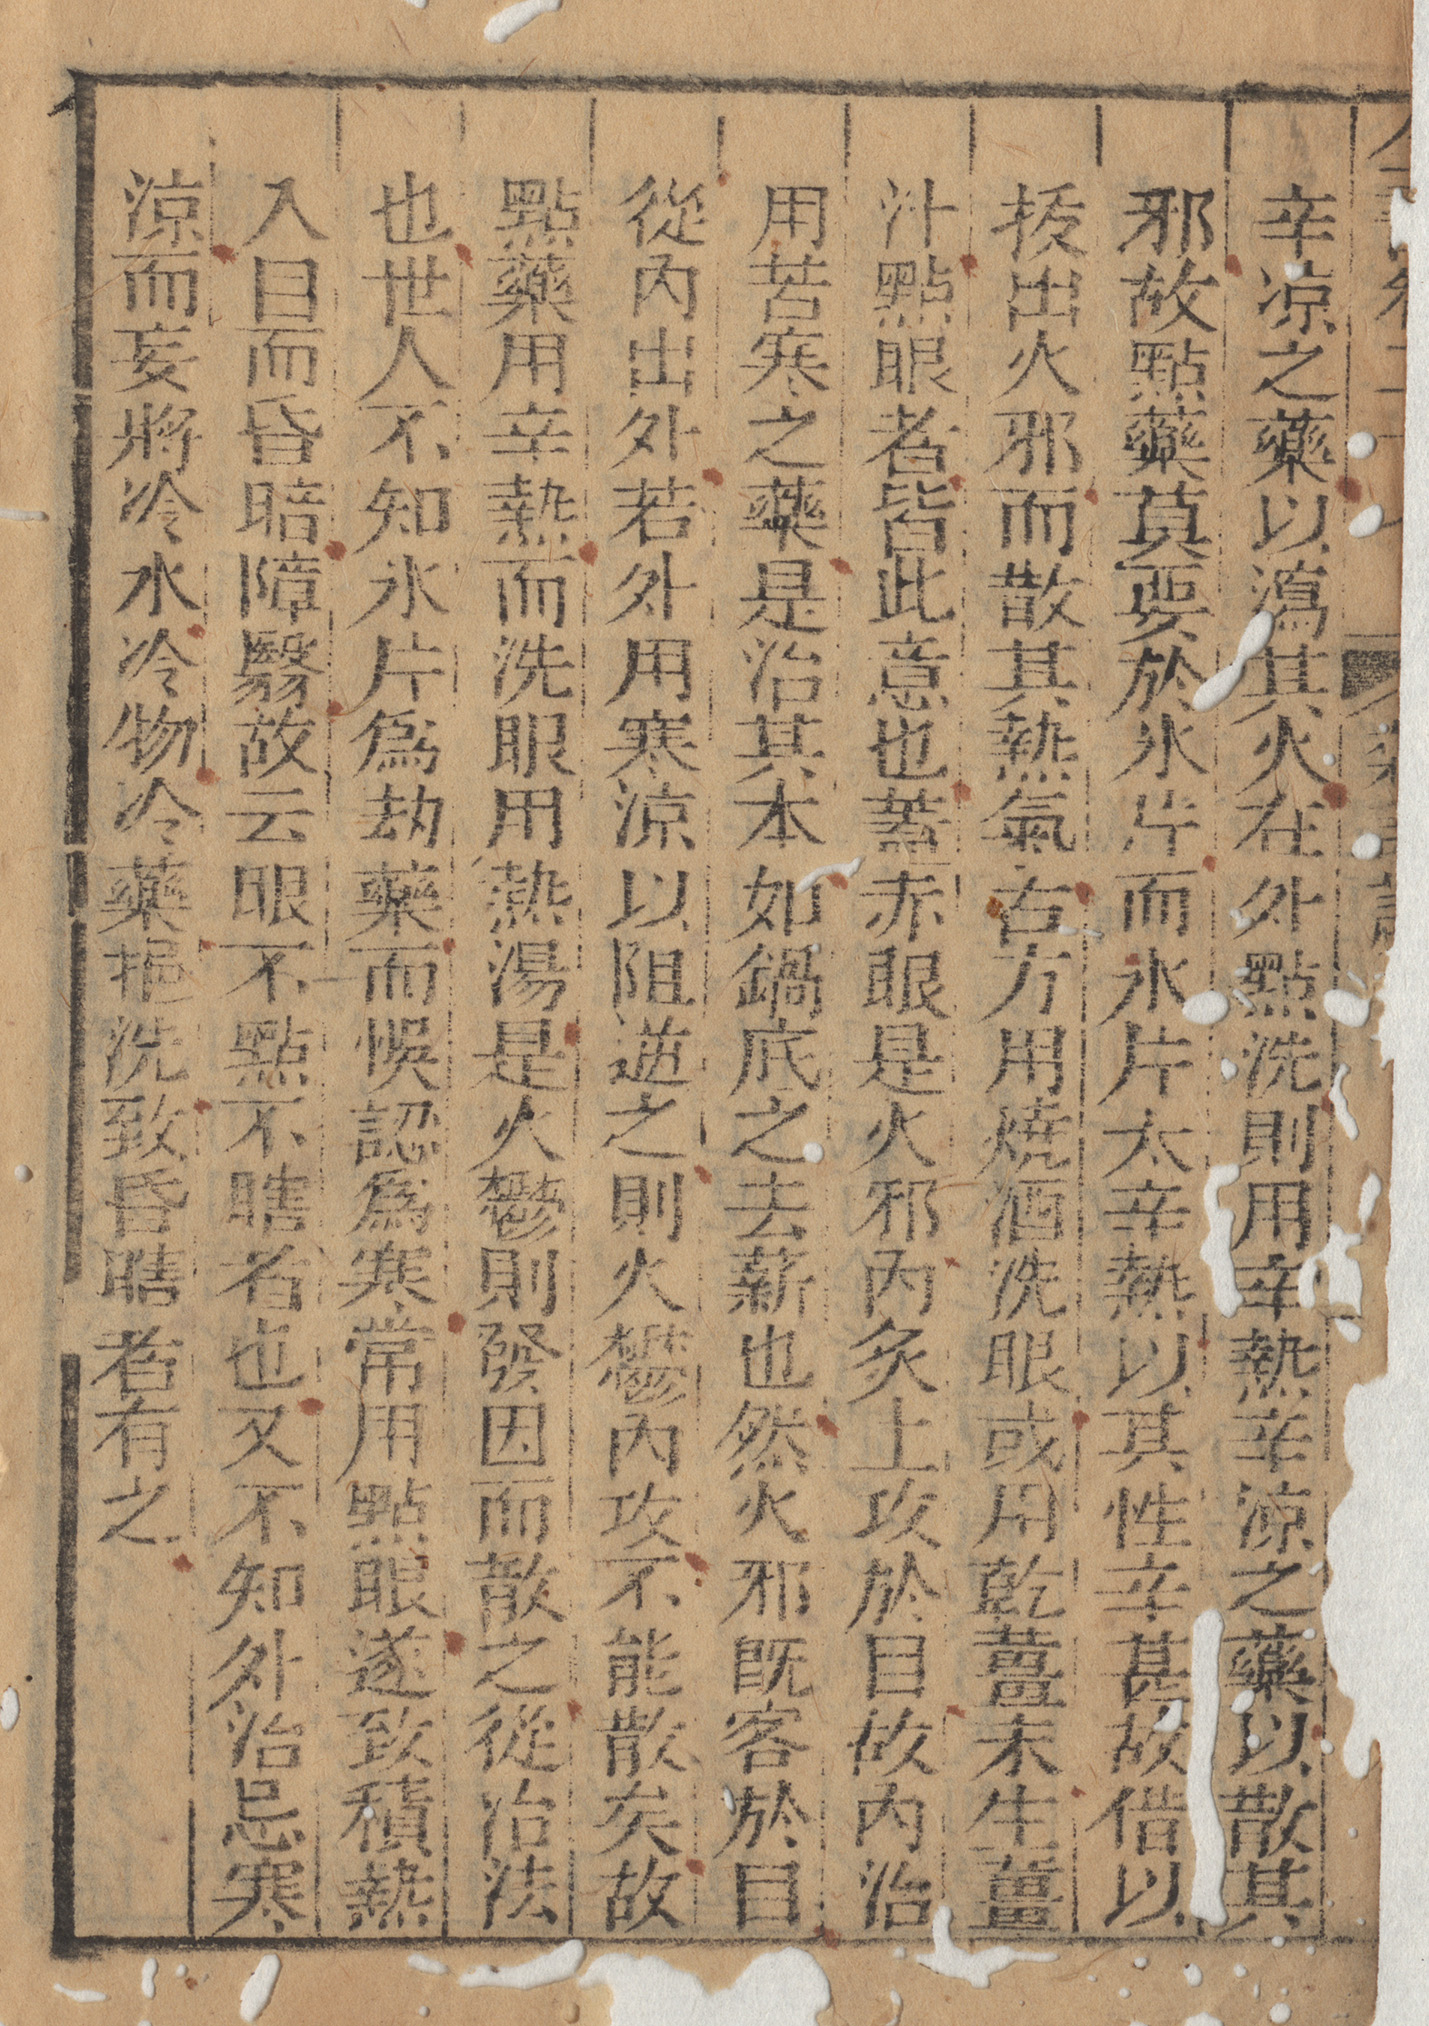 辛凉之藥以瀉其火在外點洗則用辛熱辛涼之藥以散其
邪故點藥莫要於氷片而氷片大辛熱以其性辛甚故借以
拔出火邪而散其熱氣古方用燒酒洗眼或用乾薑末生薑
汁點眼者皆此意也蓋赤眼是火邪內炙上攻於目故內治
用苦寒之藥是治其本如鍋底之去薪也然火邪既客於目
從內出外若外用寒涼以阻逆之則火鬱內攻不能散矣故
點藥用辛熱而洗眼用熱湯是火鬱則發因而散之從治法
也世人不知氷片爲劫藥而悞認爲寒常用點眼遂致積熱
入目而昏暗障翳故云眼不點不瞎者也又不知外治忌寒
涼而妄將冷水冷物冷藥挹洗致昏瞎者有之